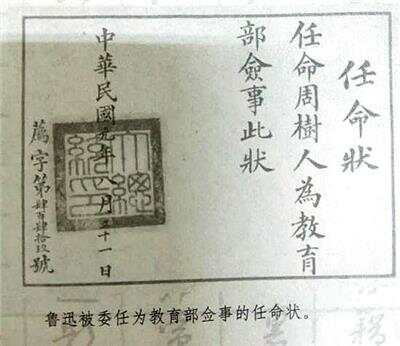 任命狀
任命周樹人為教育
部僉事此狀
中華民國元年八月二十一日
大總統印
薦字第肆百肆拾玖號
鲁迅被委任为教育部佥事的任命状。